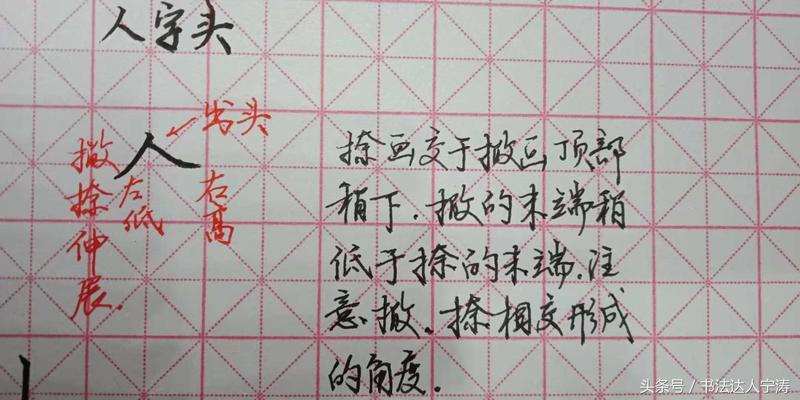 人字头
人
出头
撇捺伸展.
左低
右高
捺画交于撇画顶部
稍下.撇的末端稍
低于捺的末端.注
意撇.捺相交形成
的角度.
头条号/书法达人宁涛